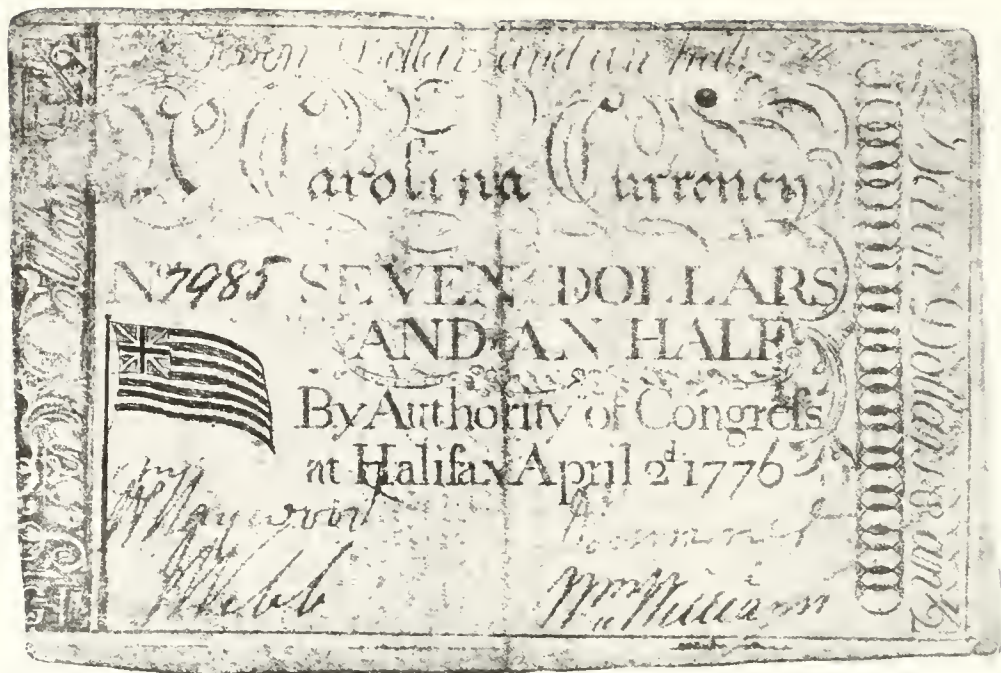 Seven Dollars and an half
Carolina Currency
No 7985 SEVEN DOLLARS
AND AN HALF
By Authority of Congreſs
at Halifax April 2d 1776
Wm Haywood
Webb
Wm Williams
Seven Dollars & an ½